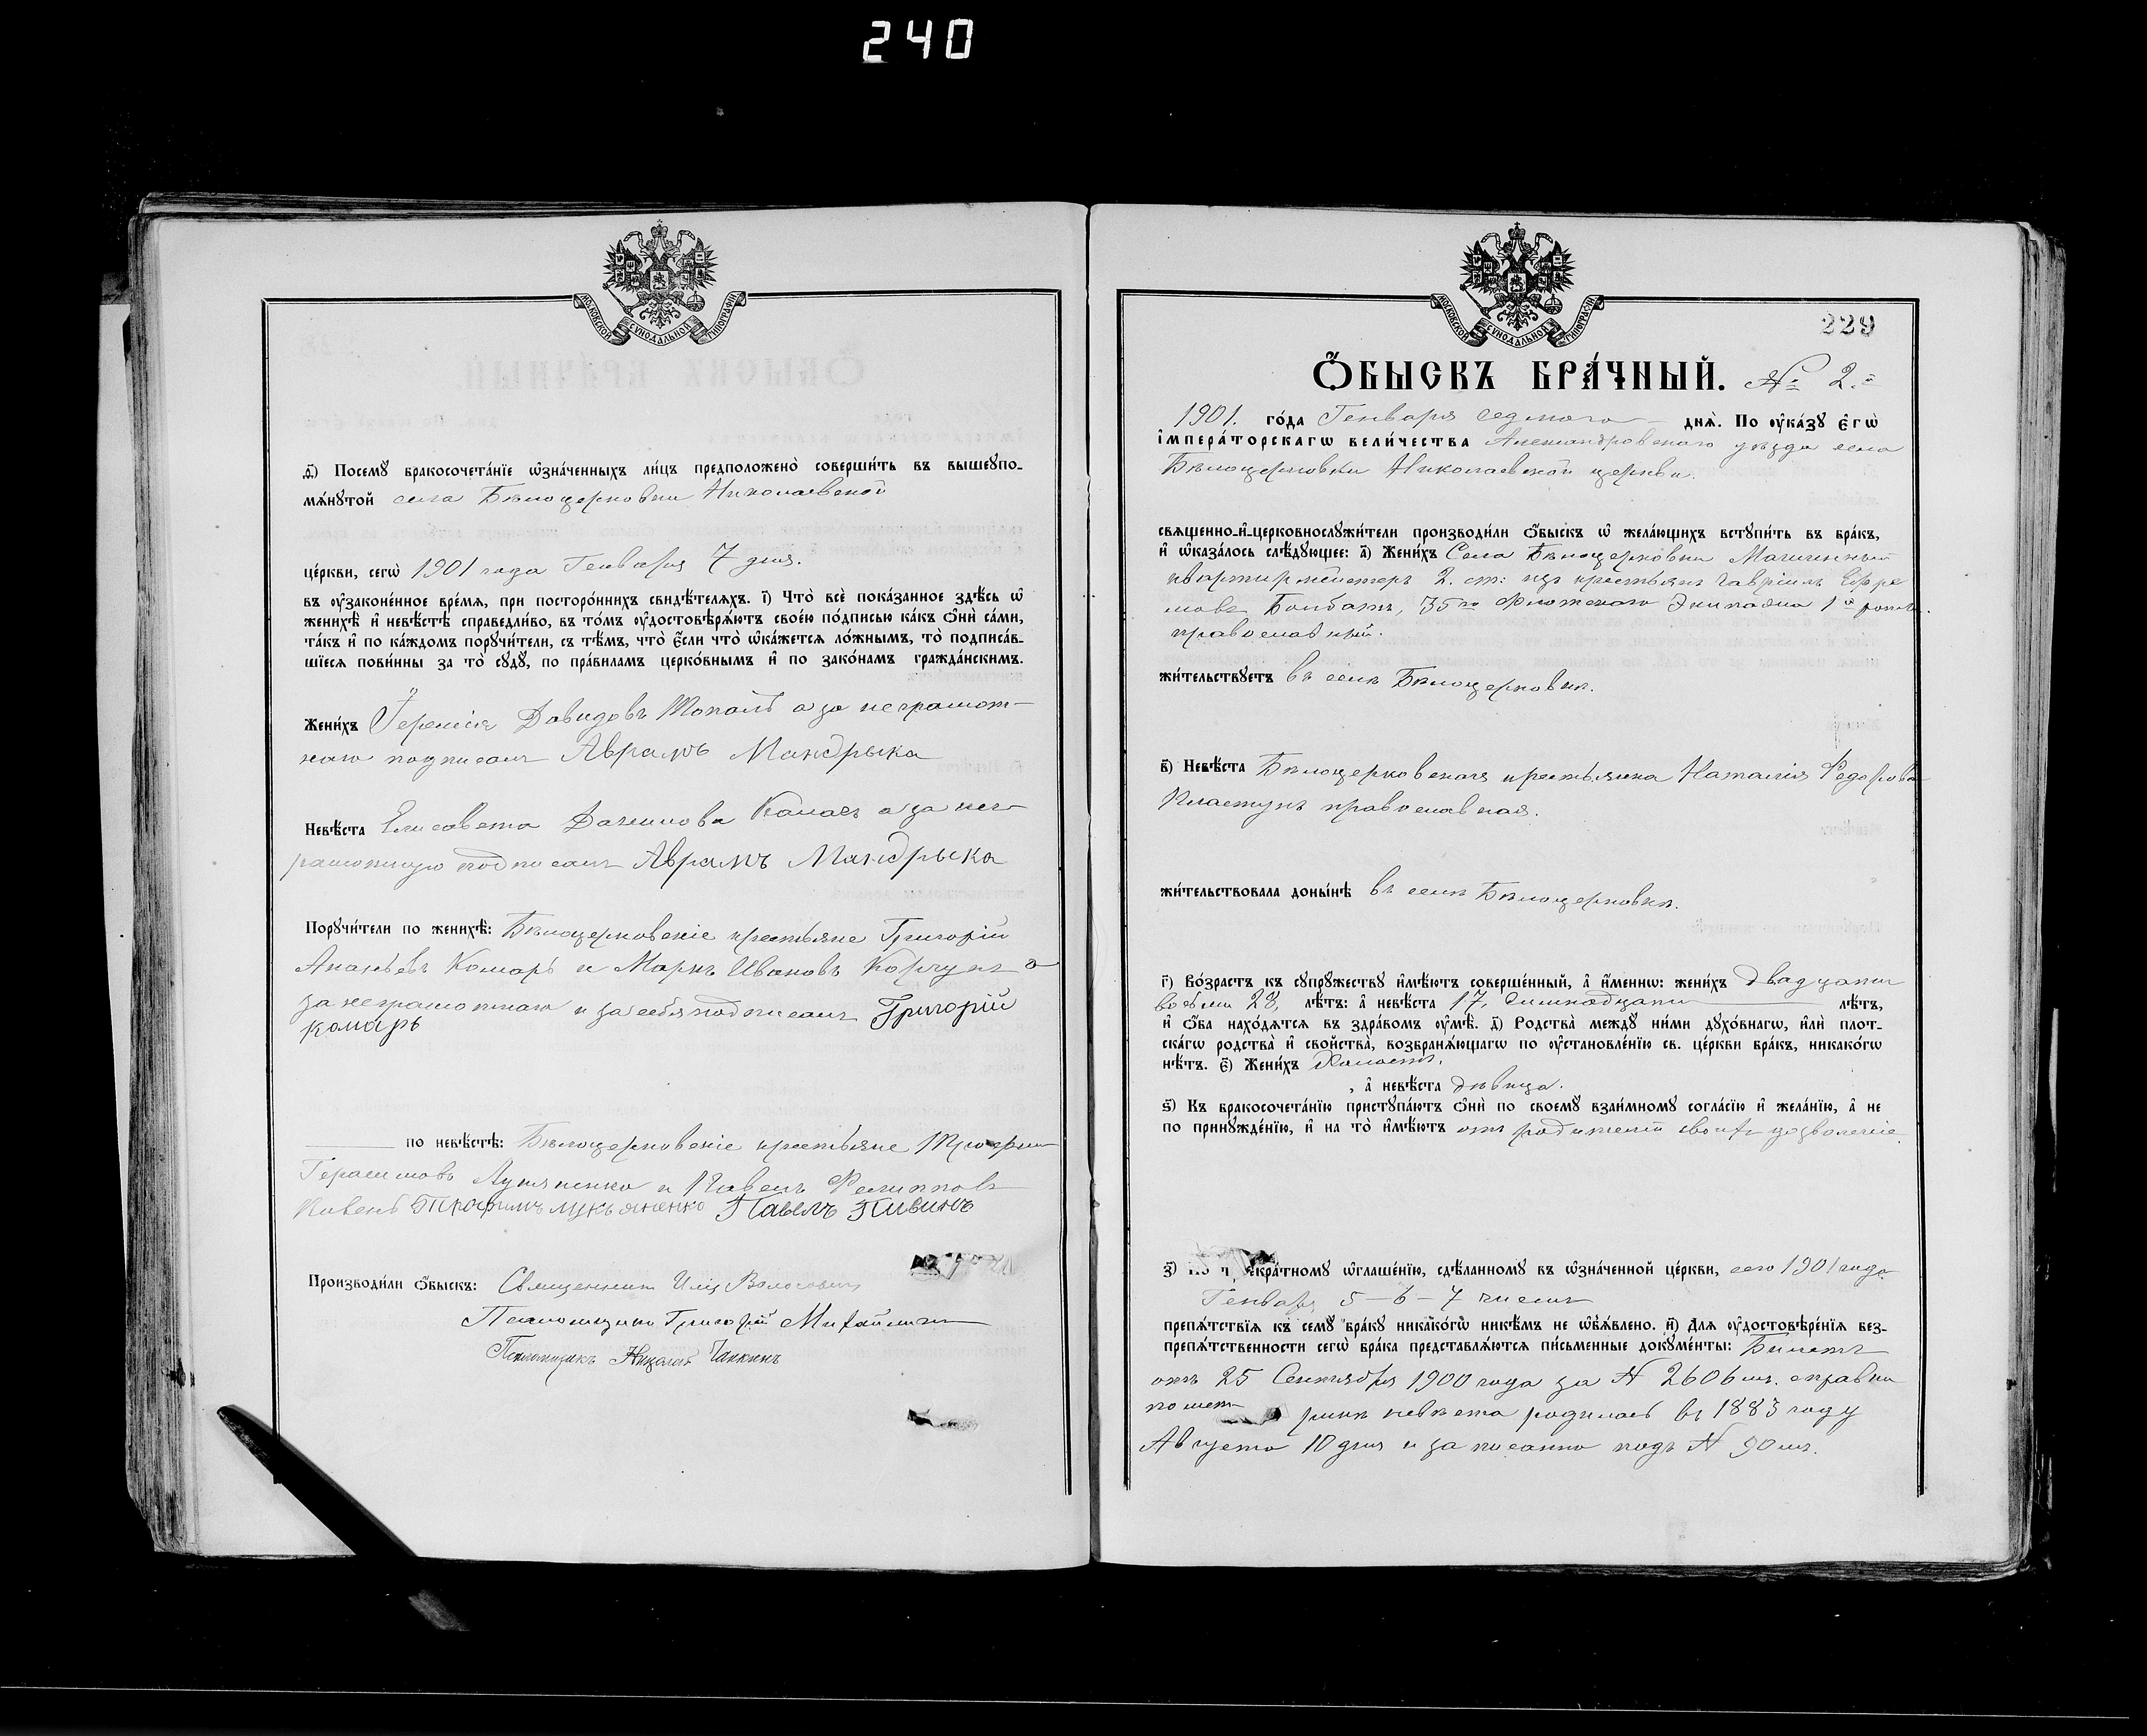 240
МОСКОВСКОЙ СУНОДАЛЬНОЙ ТИПОГРАФІИ
д҃) Посемꙋ бракосочета́нїе ѡ҆зна́ченныхъ ли́цъ предположено̀ соверши́ть въ вышеупо-
мѧ́нутой села Бѣлоцерковки Николаевской
це́ркви, сегѡ̀ 1901 года Генваря 7 дня.
въ ᲂу҆законе́нное вре́мѧ, при посторо́ннихъ свидѣ́телѧхъ. і҃) Что̀ всѐ пока́занное здѣ́сь ѡ҆
женихѣ̀ и҆ невѣ́стѣ справедли́во, въ то́мъ ᲂу҆достовѣрѧ́ютъ свое́ю по́дписью ка́къ ѻ҆нѝ са́ми,
та́къ и҆ по ка́ждомъ поручи́тели, съ тѣ́мъ, что̀ є҆́сли что̀ ѡ҆ка́жетсѧ ло́жнымъ, то̀ подписа́в-
шїесѧ пови́нны за то̀ сꙋдꙋ̀, по пра́виламъ церко́внымъ и҆ по зако́намъ гражда́нскимъ.
Жени́хъ Іеремія Давидовъ а за неграмот-
наго подписалъ Аврамъ Мандрыка
Невѣ́ста Елисавета Данилова а за нег
рамотную подписалъ Аврамъ Мандрыка
Порꙋчи́тели по женихѣ̀: Бѣлоцерковскіе крестьяне Григорій
Ананьевъ Комаръ и Маркъ Ивановъ Корчунъ а
за неграмотнаго и за себя подписалъ Григорій
комаръ
по невѣ́стѣ: Бѣлоцерковскіе крестьяне Трофим
Герасимовъ Лукьяненко и Павелъ Филипповъ
Трофимъ лукьяненко Павелъ
Производи́ли ѻ҆́быскъ: Священникъ Илія
Псаломщикъ Григорій Михайличенко
Псаломщикъ Николай
МОСКОВСКОЙ СУНОДАЛЬНОЙ ТИПОГРАФІИ
229
Ѻ҆́БЫСКЪ БРА́ЧНЫЙ. № 2.й
1901. го́да Генваря седмого днѧ̀. По ᲂу҆ка́зꙋ є҆гѡ̀
і҆мпера́торскагѡ вели́чества Александровскаго уѣзда села
Бѣлоцерковки Николаевской церкви.
свѧщенно-и҆-церковнослꙋжи́тели производи́ли ѻ҆́быскъ ѡ҆ жела́ющихъ встꙋпи́ть въ бра́къ,
и҆ ѡ҆каза́лось слѣ́дꙋющее: а҃) Жени́хъ Села Бѣлоцерковки Машинный
квартирмейстеръ 2. ст: изъ крестьянъ Гавріилъ Ефре
мовъ Болбатъ, 35го Флотскаго Экипажа 1й роты.
православный.
жи́тельствꙋетъ въ селѣ Бѣлоцерковкѣ.
в҃) Невѣ́ста Бѣлоцерковская крестьянка Наталія Федорова
Пластунъ православная.
жи́тельствовала доны́нѣ въ селѣ Бѣлоцерковкѣ.
г҃) Во́зрастъ къ сꙋпрꙋжествꙋ и҆мѣ́ютъ соверше́нный, а҆ и҆́менно: жени́хъ двадцати
восьми 28, лѣ́тъ: а҆ невѣ́ста 17, Семнадцати лѣ́тъ,
и҆ ѻ҆́ба нахо́дѧтсѧ въ здра́вомъ ᲂу҆мѣ̀. д҃) Родства̀ междꙋ ни́ми дꙋхо́внагѡ, и҆лѝ плот-
ска́гѡ родства̀ и҆ свойства̀, возбранѧ́ющагѡ по ᲂу҆становле́нїю св. це́ркви бра́къ, никако́гѡ
нѣ́тъ. є҃) Жени́хъ Холостъ,
, а҆ невѣ́ста дѣвица.
ѕ҃) Къ бракосочета́нїю пристꙋпа́ютъ ѻ҆нѝ по своемꙋ̀ взаи́мномꙋ согла́сїю и҆ жела́нїю, а҆ не
по принꙋжде́нїю, и҆ на то̀ и҆мѣ́ютъ отъ родителей своихъ позволеніе
з҃) По т кра́тномꙋ ѡ҆глаше́нїю, сдѣ́ланномꙋ въ ѡ҆зна́ченной це́ркви, сего 1901 года
Генваря 5-6-7 числъ
препѧ́тствїѧ къ семꙋ̀ бра́кꙋ никако́гѡ никѣ́мъ не ѡ҆б̾ѧ́влено. и҃) Длѧ ᲂу҆достовѣре́нїѧ без-
препѧ́тственности сегѡ̀ бра́ка представлѧ́ютсѧ пи́сьменные докꙋме́нты: Билетъ
отъ 25 Сентября 1900 года за № 2606мъ. справки
по мет рикѣ невѣста родилась въ 1883 году
Августа 10 дня и записанно подъ № 90мъ.